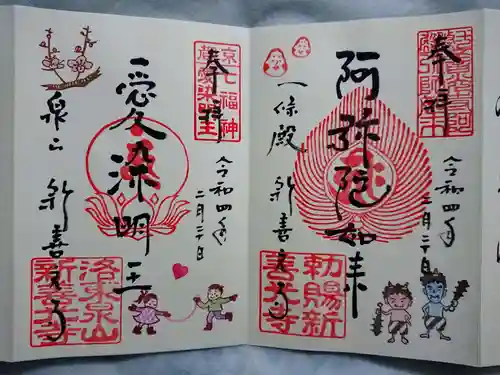 奉拝
阿弥陀如来
一條殿
新善光寺
令和四年
二月二十日
勅賜新
善光寺
奉拝
京七福神
愛染明王
愛染明王
泉山
新善光寺
令和四年
二月二十日
洛東泉山
新善光寺